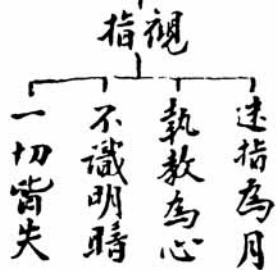 觀指
迷指為月
執教為心
不識明暗
一切皆失